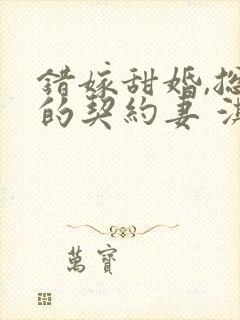 錯嫁甜婚,
的契約妻
萬寶